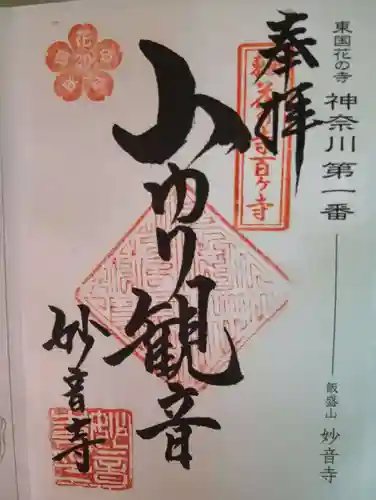 東国花の寺 神奈川 第一番
飯盛山 妙音寺
奉拝
東国花の寺百ヶ寺
山ゆり観音
妙音寺